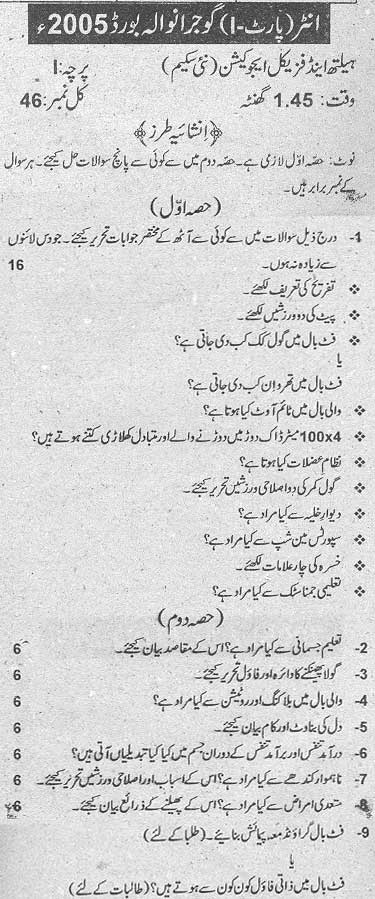 انٹر (پارٹ-I) گوجرانوالہ بورڈ 2005ء
ہیلتھ اینڈ فزیکل ایجوکیشن (نئی سکیم) پرچہ: I
وقت: 1.45 گھنٹہ کل نمبر: 46
﴿اِنشائیہ طرز﴾
نوٹ: حصہ اوّل لازمی ہے۔ حصہ دوم میں سے کوئی سے پانچ سوالات حل کیجئے۔ ہر سوال
کے نمبر برابر ہیں۔
(حصہ اوّل)
1- درج ذیل سوالات میں سے کوئی سے آٹھ کے مختصر جوابات تحریر کیجئے۔ جو دس لائنوں
سے زیادہ نہ ہوں۔ 16
❖ تفریح کی تعریف لکھئے۔
❖ پیٹ کی دو ورزشیں لکھئے۔
❖ فٹ بال میں گول کک کب دی جاتی ہے؟
یا
فٹ بال میں تھرو اِن کب دی جاتی ہے؟
❖ والی بال میں ٹائم آوٹ کیا ہوتا ہے؟
❖ 100x4 میٹر ڈاک دوڑ میں دوڑنے والے اور متبادل کھلاڑی کتنے ہوتے ہیں؟
❖ نظام عضلات کیا ہوتا ہے؟
❖ گول کمر کی دو اصلاحی ورزشیں تحریر کیجئے۔
❖ دیوار خلیہ سے کیا مراد ہے؟
❖ سپورٹس مین شپ سے کیا مراد ہے؟
❖ خسرہ کی چار علامات لکھئے۔
❖ تعلیمی جمناسٹک سے کیا مراد ہے؟
(حصہ دوم)
2- تعلیم جسمانی سے کیا مراد ہے؟ اس کے مقاصد بیان کیجئے۔ 6
3- گولا پھینکنے کا دائرہ اور فاؤل تحریر کیجئے۔ 6
4- والی بال میں بلاکنگ اور روٹیشن سے کیا مراد ہے؟ 6
5- دل کی بناوٹ اور کام بیان کیجئے۔ 6
6- درآمد تنفس اور برآمد تنفس کے دوران جسم میں کیا کیا تبدیلیاں آتی ہیں؟ 6
7- ناہموار کندھے سے کیا مراد ہے؟ اس کے اسباب اور اصلاحی ورزشیں تحریر کیجئے۔ 6
8- متعدی امراض سے کیا مراد ہے؟ اس کے پھیلنے کے ذرائع بیان کیجئے۔ 6
9- فٹ بال گراؤنڈ معہ پیمائش بنائیے۔ (طلبا کے لئے)
یا
فٹ بال میں ذاتی فاؤل کون کون سے ہوتے ہیں؟ (طالبات کے لئے)